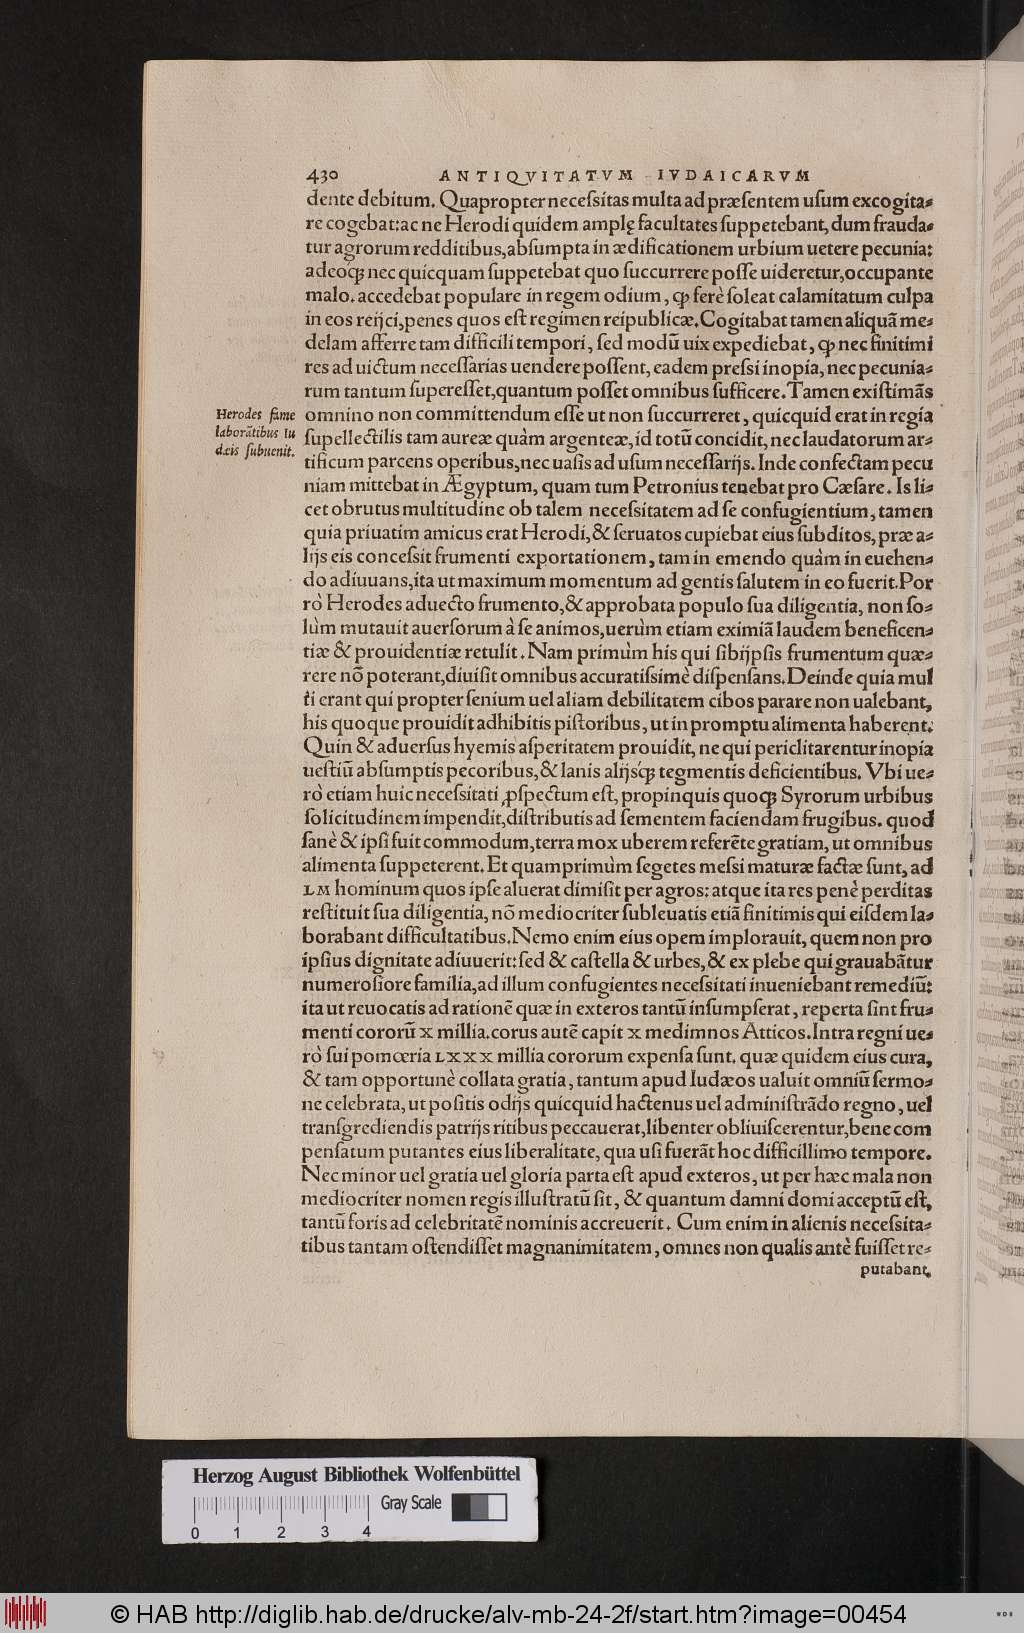 430 ANTIQVITATVM IVDAICARVM
dente debitum. Quapropter neceſsitas multa ad præſentem uſum excogita-
re cogebat: ac ne Herodi quidem amplę facultates ſuppetebant, dum frauda-
tur agrorum redditibus, abſumpta in ædificationem urbium uetere pecunia:
adeoq́; nec quicquam ſuppetebat quo ſuccurrere poſſe uideretur, occupante
malo. accedebat populare in regem odium, ꝙ ferè ſoleat calamitatum culpa
in eos reijci, penes quos eſt regimen reipublicæ. Cogitabat tamen aliquã me-
delam afferre tam difficili tempori, ſed modũ uix expediebat, ꝙ nec finitimi
res ad uictum neceſſarias uendere poſſent, eadem preſsi inopia, nec pecunia-
rum tantum ſupereſſet, quantum poſſet omnibus ſufficere. Tamen exiſtimãs
Herodes fame
laborãtibus Iu
dæis ſubuenit.
omnino non committendum eſſe ut non ſuccurreret, quicquid erat in regia
ſupellectilis tam aureæ quàm argenteæ, id totũ concidit, nec laudatorum ar-
tificum parcens operibus, nec uaſis ad uſum neceſſarijs. Inde confectam pecu
niam mittebat in Ægyptum, quam tum Petronius tenebat pro Cæſare. Is li-
cet obrutus multitudine ob talem neceſsitatem ad ſe confugientium, tamen
quia priuatim amicus erat Herodi, & ſeruatos cupiebat eius ſubditos, præ a-
lijs eis conceſsit frumenti exportationem, tam in emendo quàm in euehen-
do adiuuans, ita ut maximum momentum ad gentis ſalutem in eo fuerit. Por
rò Herodes aduecto frumento, & approbata populo ſua diligentia, non ſo-
lùm mutauit auerſorum à ſe animos, uerùm etiam eximiã laudem beneficen-
tiæ & prouidentiæ retulit. Nam primùm his qui ſibijpſis frumentum quæ-
rere nõ poterant, diuiſit omnibus accuratiſsimè diſpenſans. Deinde quia mul
ti erant qui propter ſenium uel aliam debilitatem cibos parare non ualebant,
his quoque prouidit adhibitis piſtoribus, ut in promptu alimenta haberent.
Quin & aduerſus hyemis aſperitatem prouidit, ne qui periclitarentur inopia
ueſtiũ abſumptis pecoribus, & lanis alijsq́; tegmentis deficientibus. Vbi ue-
rò etiam huic neceſsitati ꝓſpectum eſt, propinquis quoq; Syrorum urbibus
ſolicitudinem impendit, diſtributis ad ſementem faciendam frugibus. quod
ſanè & ipſi fuit commodum, terra mox uberem referẽte gratiam, ut omnibus
alimenta ſuppeterent. Et quamprimùm ſegetes meſsi maturæ factæ ſunt, ad
LM hominum quos ipſe aluerat dimiſit per agros: atque ita res penè perditas
reſtituit ſua diligentia, nõ mediocriter ſubleuatis etiã finitimis qui eiſdem la-
borabant difficultatibus. Nemo enim eius opem implorauit, quem non pro
ipſius dignitate adiuuerit: ſed & caſtella & urbes, & ex plebe qui grauabãtur
numeroſiore familia, ad illum confugientes neceſsitati inueniebant remediũ:
ita ut reuocatis ad rationẽ quæ in exteros tantũ inſumpſerat, reperta ſint fru-
menti cororũ X millia. corus autẽ capit X medimnos Atticos. Intra regni ue-
rò ſui pomœria LXXX millia cororum expenſa ſunt. quæ quidem eius cura,
& tam opportunè collata gratia, tantum apud Iudæos ualuit omniũ ſermo-
ne celebrata, ut poſitis odijs quicquid hactenus uel adminiſtrãdo regno, uel
tranſgrediendis patrijs ritibus peccauerat, libenter obliuiſcerentur, bene com
penſatum putantes eius liberalitate, qua uſi fuerãt hoc difficillimo tempore.
Nec minor uel gratia uel gloria parta eſt apud exteros, ut per hæc mala non
mediocriter nomen regis illuſtratũ ſit, & quantum damni domi acceptũ eſt,
tantũ foris ad celebritatẽ nominis accreuerit. Cum enim in alienis neceſsita-
tibus tantam oſtendiſſet magnanimitatem, omnes non qualis antè fuiſſet re-
putabant,
Herzog August Bibliothek Wolfenbüttel
Gray Scale
0 1 2 3 4
© HAB http://diglib.hab.de/drucke/alv-mb-24-2f/start.htm?image=00454